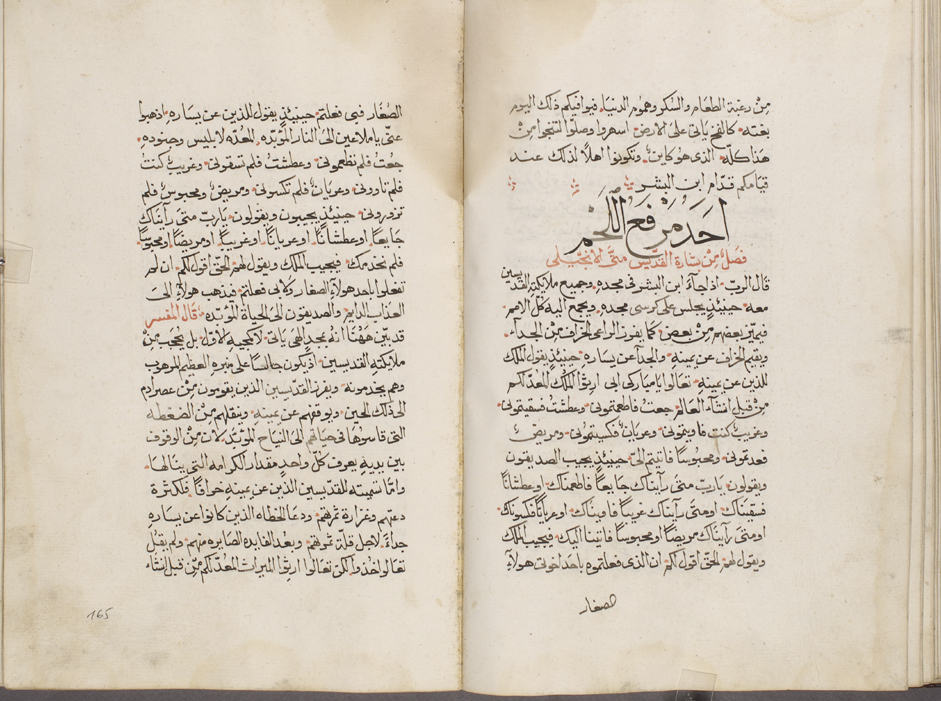 من رغبة الطعام والسكر وهموم الدنيا فيوافيكم ذلك اليوم
بغته كالفخ ياتي على الارض اسهروا وصلوا لتنجوا من
هذا كله الذي هو كاين وتكونوا اهلا لذلك عند
قيامكم قدام ابن البشر
احد مرفع اللحم
فصل من بشارة القديس متى الانجيلي
قال الرب اذا جآء ابن البشر في مجده وجميع ملايكته القديسين
معه حينيذٍ يجلس على كرسي مجده ويجمع اليه كل الامم
فيميّز بعضهم من بعض كما يفرز الراعي الخراف من الجداء
ويقيم الخراف عن يمينه والجدا عن يساره حينيذٍ يقول الملك
للذين عن يمينه تعالوا يا مباركي ابي ارثوا الملك المُعدّ لكم
من قبل انشآء العالم جعت فاطعمتموني وعطشت فسقيتموني
وغريب كنت فاويتموني وعريان فكسيتموني ومريض
فعدتموني ومحبوسًا فاتيتم اليّ حينيذٍ يجيب الصديقون
ويقولون يا ربّ متى رآيناك جايعاً فاطعمناك او عطشانًا
فسقيناك او متى رآيناك غريبًا فاويناك او عريانًا فكسوناك
او متى رآيناك مريضًا او محبوسًا فاتينا اليك فيجيب الملك
ويقول لهم الحق اقول لكم ان الذي فعلتموه باحد اخوتي هولآء
الصغار
الصغار فبي فعلتم حينيذٍ يقول للذين عن يساره اذهبوا
عنّي يا ملاعين الى النار المؤبّده المُعدّه لابليس وجنوده
جعت فلم تطعموني وعطشت فلم تسقوني وغريب كنت
فلم تاووني وعريان فلم تكسوني ومريض ومحبوس فلم
تزوروني حينيذٍ يجيبون ويقولون يا ربّ متى رآيناك
جايعاً او عطشاناً او عرياناً او غريباً او مريضًا او محبوسًا
فلم نخدمك فيجيب الملك ويقول لهم الحق اقول لكم ان لم
تفعلوا باحد هولآء الصغار ولا بي فعلتم فيذهب هولآء الى
العذاب الدايم والصديقون الى الحياة المؤبّده قال المفسر
قد بيّن ههُنا انه بمجد الهي ياتي لا كمجيه الاول بل يجيب من
ملايكته القديسين اذ يكون جالساً على منبره العظيم المرهب
وهم يخدمونه ويفرز القديسين الذين يقومون من عصر ادم
الى ذلك الحين ويوقفهم عن يمينه وينقلهم من الضغطه
التي قاسوها في حياتهم الى النياح المؤبّد لان من الوقوف
بين يديه يعرف كل واحدٍ مقدار الكرامه التي ينالها
وامّا تسميته للقديسين الذين عن يمينه خرافاً فلكثرة
دعتهم وغزارة ثمرهم ودعا الخطاه الذين كانوا عن يساره
جداءً لاجل قلّة ثمرهم وبعد الفايده الصايره منهم ولم يقل
تعالوا خذوا لكن تعالوا ارثوا الميراث المعدّ لكم من قبل انشاء
165